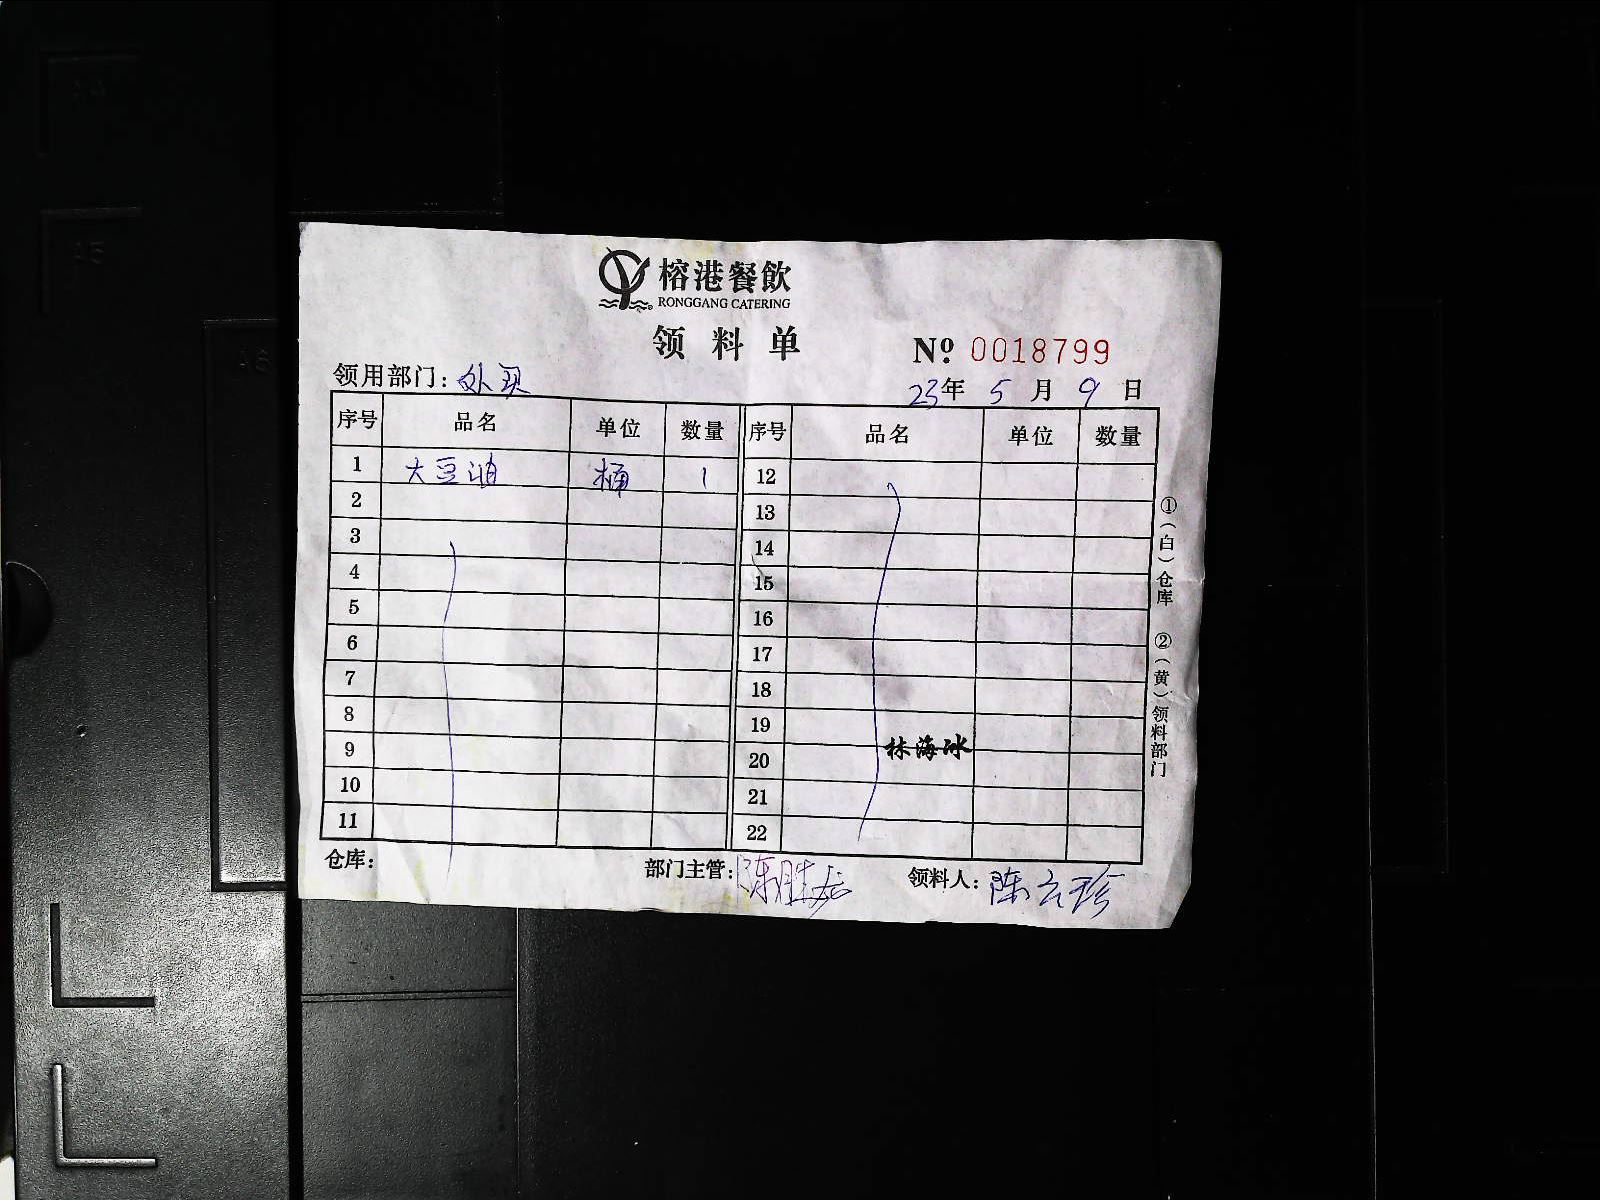 榕港餐飲
RONGGANG CATERING
领料单
№ 0018799
领用部门：外卖
23年 5 月 9 日
序号 品名 单位 数量 序号 品名 单位 数量
1 大豆油 桶 1 12
2 13
3 14
4 15
5 16
6 17
7 18
8 19
9 20 林海冰
10 21
11 22
①（白）仓库 ②（黄）领料部门
仓库： 部门主管：陈胜龙 领料人：陈云珍